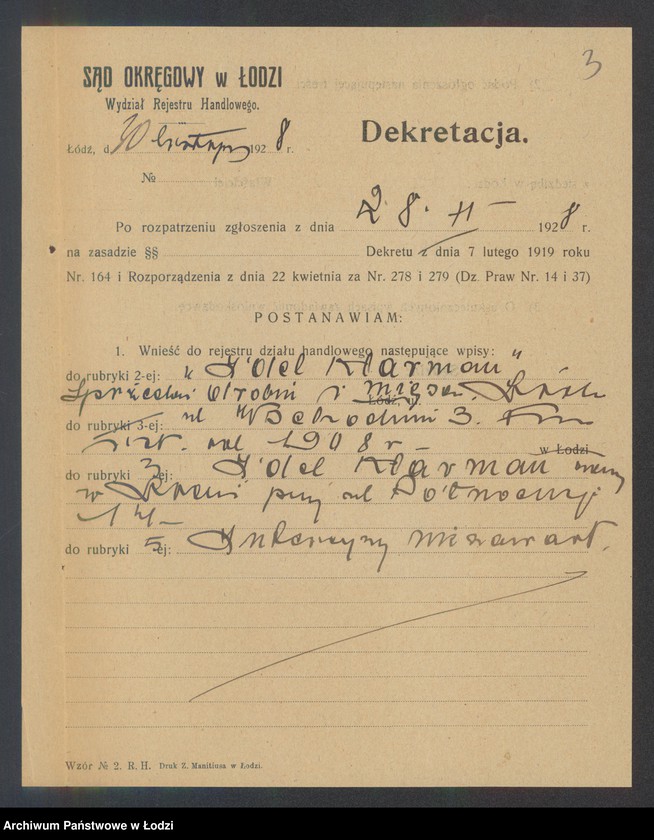 3
SĄD OKRĘGOWY w ŁODZI
Wydział Rejestru Handlowego.
Dekretacja.
Łódź, d. 30 listopada 1928 r.
№
Po rozpatrzeniu zgłoszenia z dnia 28. 11 – 1928 r.
na zasadzie §§ Dekretu z dnia 7 lutego 1919 roku
Nr. 164 i Rozporządzenia z dnia 22 kwietnia za Nr. 278 i 279 (Dz. Praw Nr. 14 i 37)
POSTANAWIAM:
1. Wnieść do rejestru działu handlowego następujące wpisy:
do rubryki 2-ej: „Idel Klarman"
Sprzedaż drobiu i mięsa. Łódź, ul.
do rubryki 3-ej: ul Wschodnia 3.
istn. od 1908 r – w Łodzi
do rubryki 3 ej: Idel Klarman zam
w Łodzi przy ul Północnej
14 –
do rubryki 5 ej: Intercyzy niezawart.
Wzór № 2. R. H. Druk Z. Manitiusa w Łodzi.
Archiwum Państwowe w Łodzi